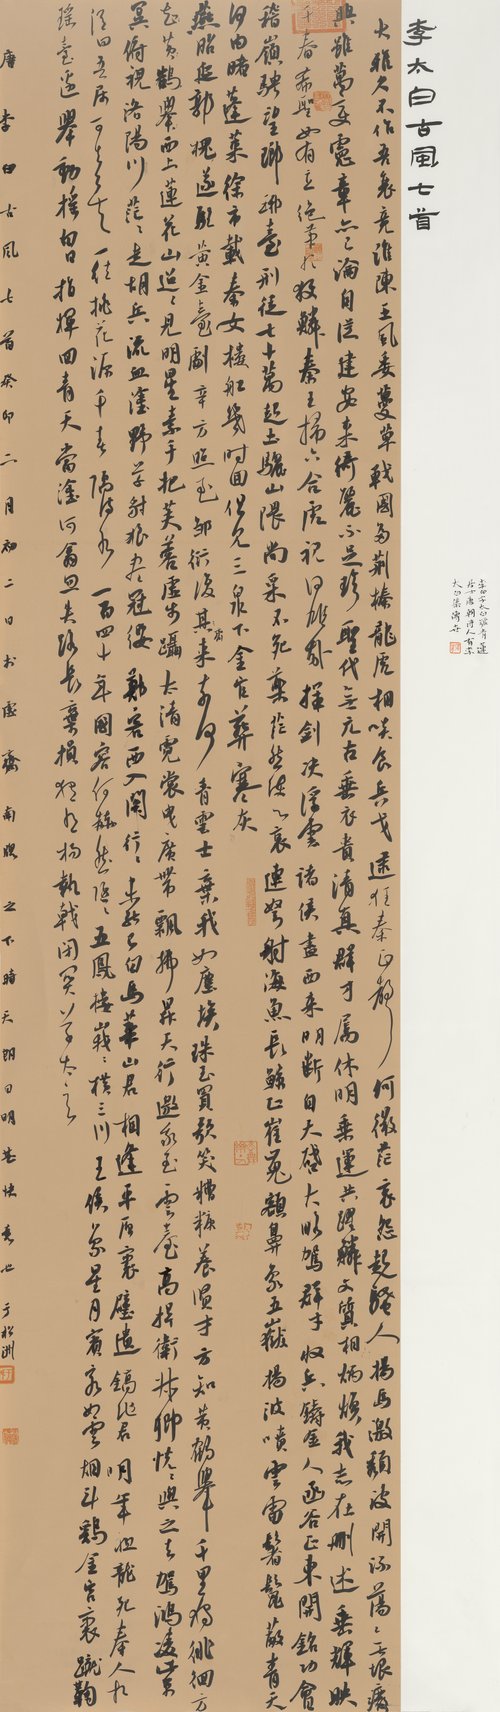 李太白古風七首
大雅久不作吾衰竟誰陳王風委蔓草戰國多荊榛龍虎相啖食兵戈逮狂秦正聲何微茫哀怨起騷人揚馬激頹波開流蕩〻無垠廢
興雖萬變憲章亦已淪自從建安來綺麗不足珍聖代復元古垂衣貴清真群才屬休明乘運共躍鱗文質相炳煥我志在刪述垂輝映
千春希聖如有立絕筆於獲麟秦王掃六合虎視何雄哉揮劍決浮雲諸侯盡西來明斷自天啟大略駕群才收兵鑄金人函谷正東開銘功會
稽嶺騁望瑯琊臺刑徒七十萬起土驪山隈尚采不死藥茫然使心哀連弩射海魚長鯨正崔嵬額鼻象五嶽揚波噴雲雷鬐鬣蔽青天
何由睹蓬萊徐市載秦女樓船幾時回但見三泉下金官葬寒灰
燕昭延郭隗遂築黃金臺劇辛方趙至鄒衍復齊來奈何青雲士棄我如塵埃珠玉買歌笑糟糠養賢才方知黃鶴舉千里獨徘徊方
知黃鶴舉西上蓮花山迢〻見明星素手把芙蓉虛步躡太清霓裳曳廣帶飄拂昇天行邀我至雲臺高揖衛叔卿恍〻與之去駕鴻凌紫
冥俯視洛陽川茫〻走胡兵流血塗野草豺狼盡冠纓鄭客西入關行〻未能已白馬華山君相逢平原裏璧遺鎬池君明年祖龍死秦人相
謂曰吾屬可去矣一往桃花源千春隔流水一百四十年國容何赫然隱〻五鳳樓峨〻橫三川王侯象星月賓客如雲烟斗鷄金宮裏蹴鞠
瑤臺邊舉動搖白日指揮回青天當塗何翕忽失路長棄損獨有揚執戟閉關草太玄
唐李白古風七首癸卯二月初二日於虛齋南照之下時天朗日明甚快意也方松洲
李白字太白號青蓮
居士唐朝詩人有李
太白集傳世